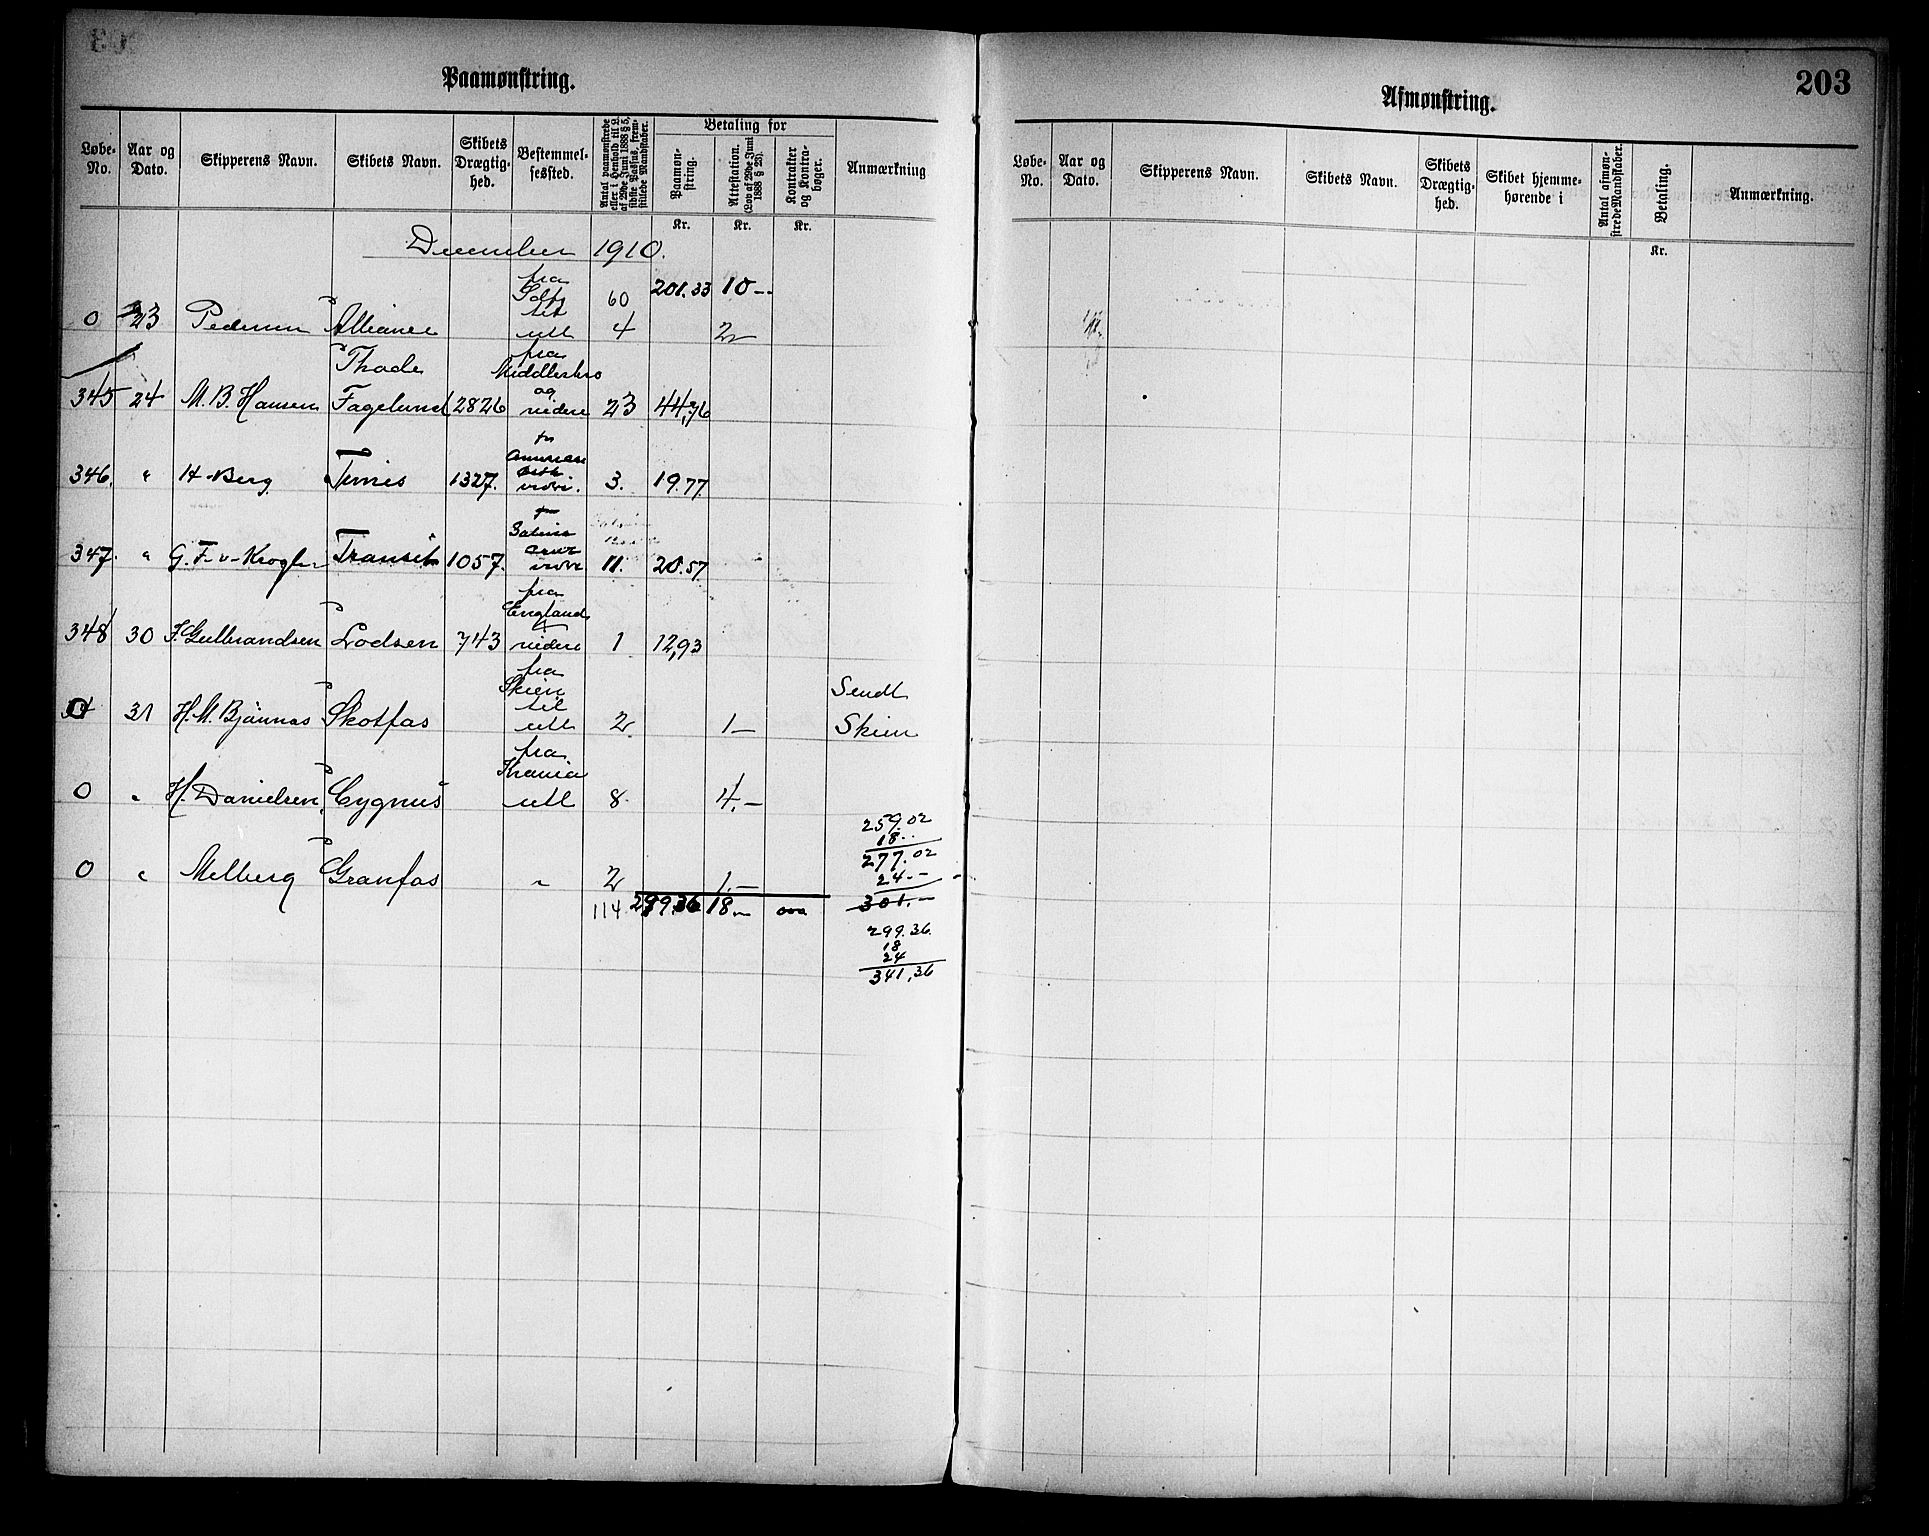 Paamønstring.
Løbe-No.
Aar og Dato.
Skipperens Navn.
Skibets Navn.
Skibets Drægtig-hed.
Bestemmel-sessted.
Antal paamønstrede eller i Henhold til L. af 29de Juni 1888 § 5, sidste Passus, frem-stillede Mandskaber.
Betaling for
Paamøn-string.
Attestation. (Lov af 29de Juni 1888 § 23).
Kontrakter og Kontra-bøger.
Anmærkning
Kr. Kr. Kr.
December 1910.
60 201.33 10 -
0 23 Pedersen Alliance fra til utl 4 2 -
345 24 M. B. Hansen Thode Fagelund 2826 fra Middlesbro og videre 23 44,76
346. " H. Berg Timis 1327. 3. 19.77
347. " G. F. v. Krogh Transit 1057. 11. 20.57
348 30 J. Gulbrandsen Lodsen 743 fra England videre 1 12,93
0 31 H. M. Bjönnas Skotfos fra Skien til utl 2 1 - Sendt Skien
0 " H. Danielsen Cygnus fra Krania utl 8 4. -
0 " Melberg Granfos " 2 1. -
114 299.36 18. -
259.02
18 -
277.02
24 -
301. -
299.36
18
24
341,36
Afmønstring.
203
Løbe-No.
Aar og Dato.
Skipperens Navn.
Skibets Navn.
Skibets Drægtig-hed.
Skibet hjemme-hørende i
Antal afmøn-strede Mandskaber.
Betaling.
Anmærkning.
Kr.